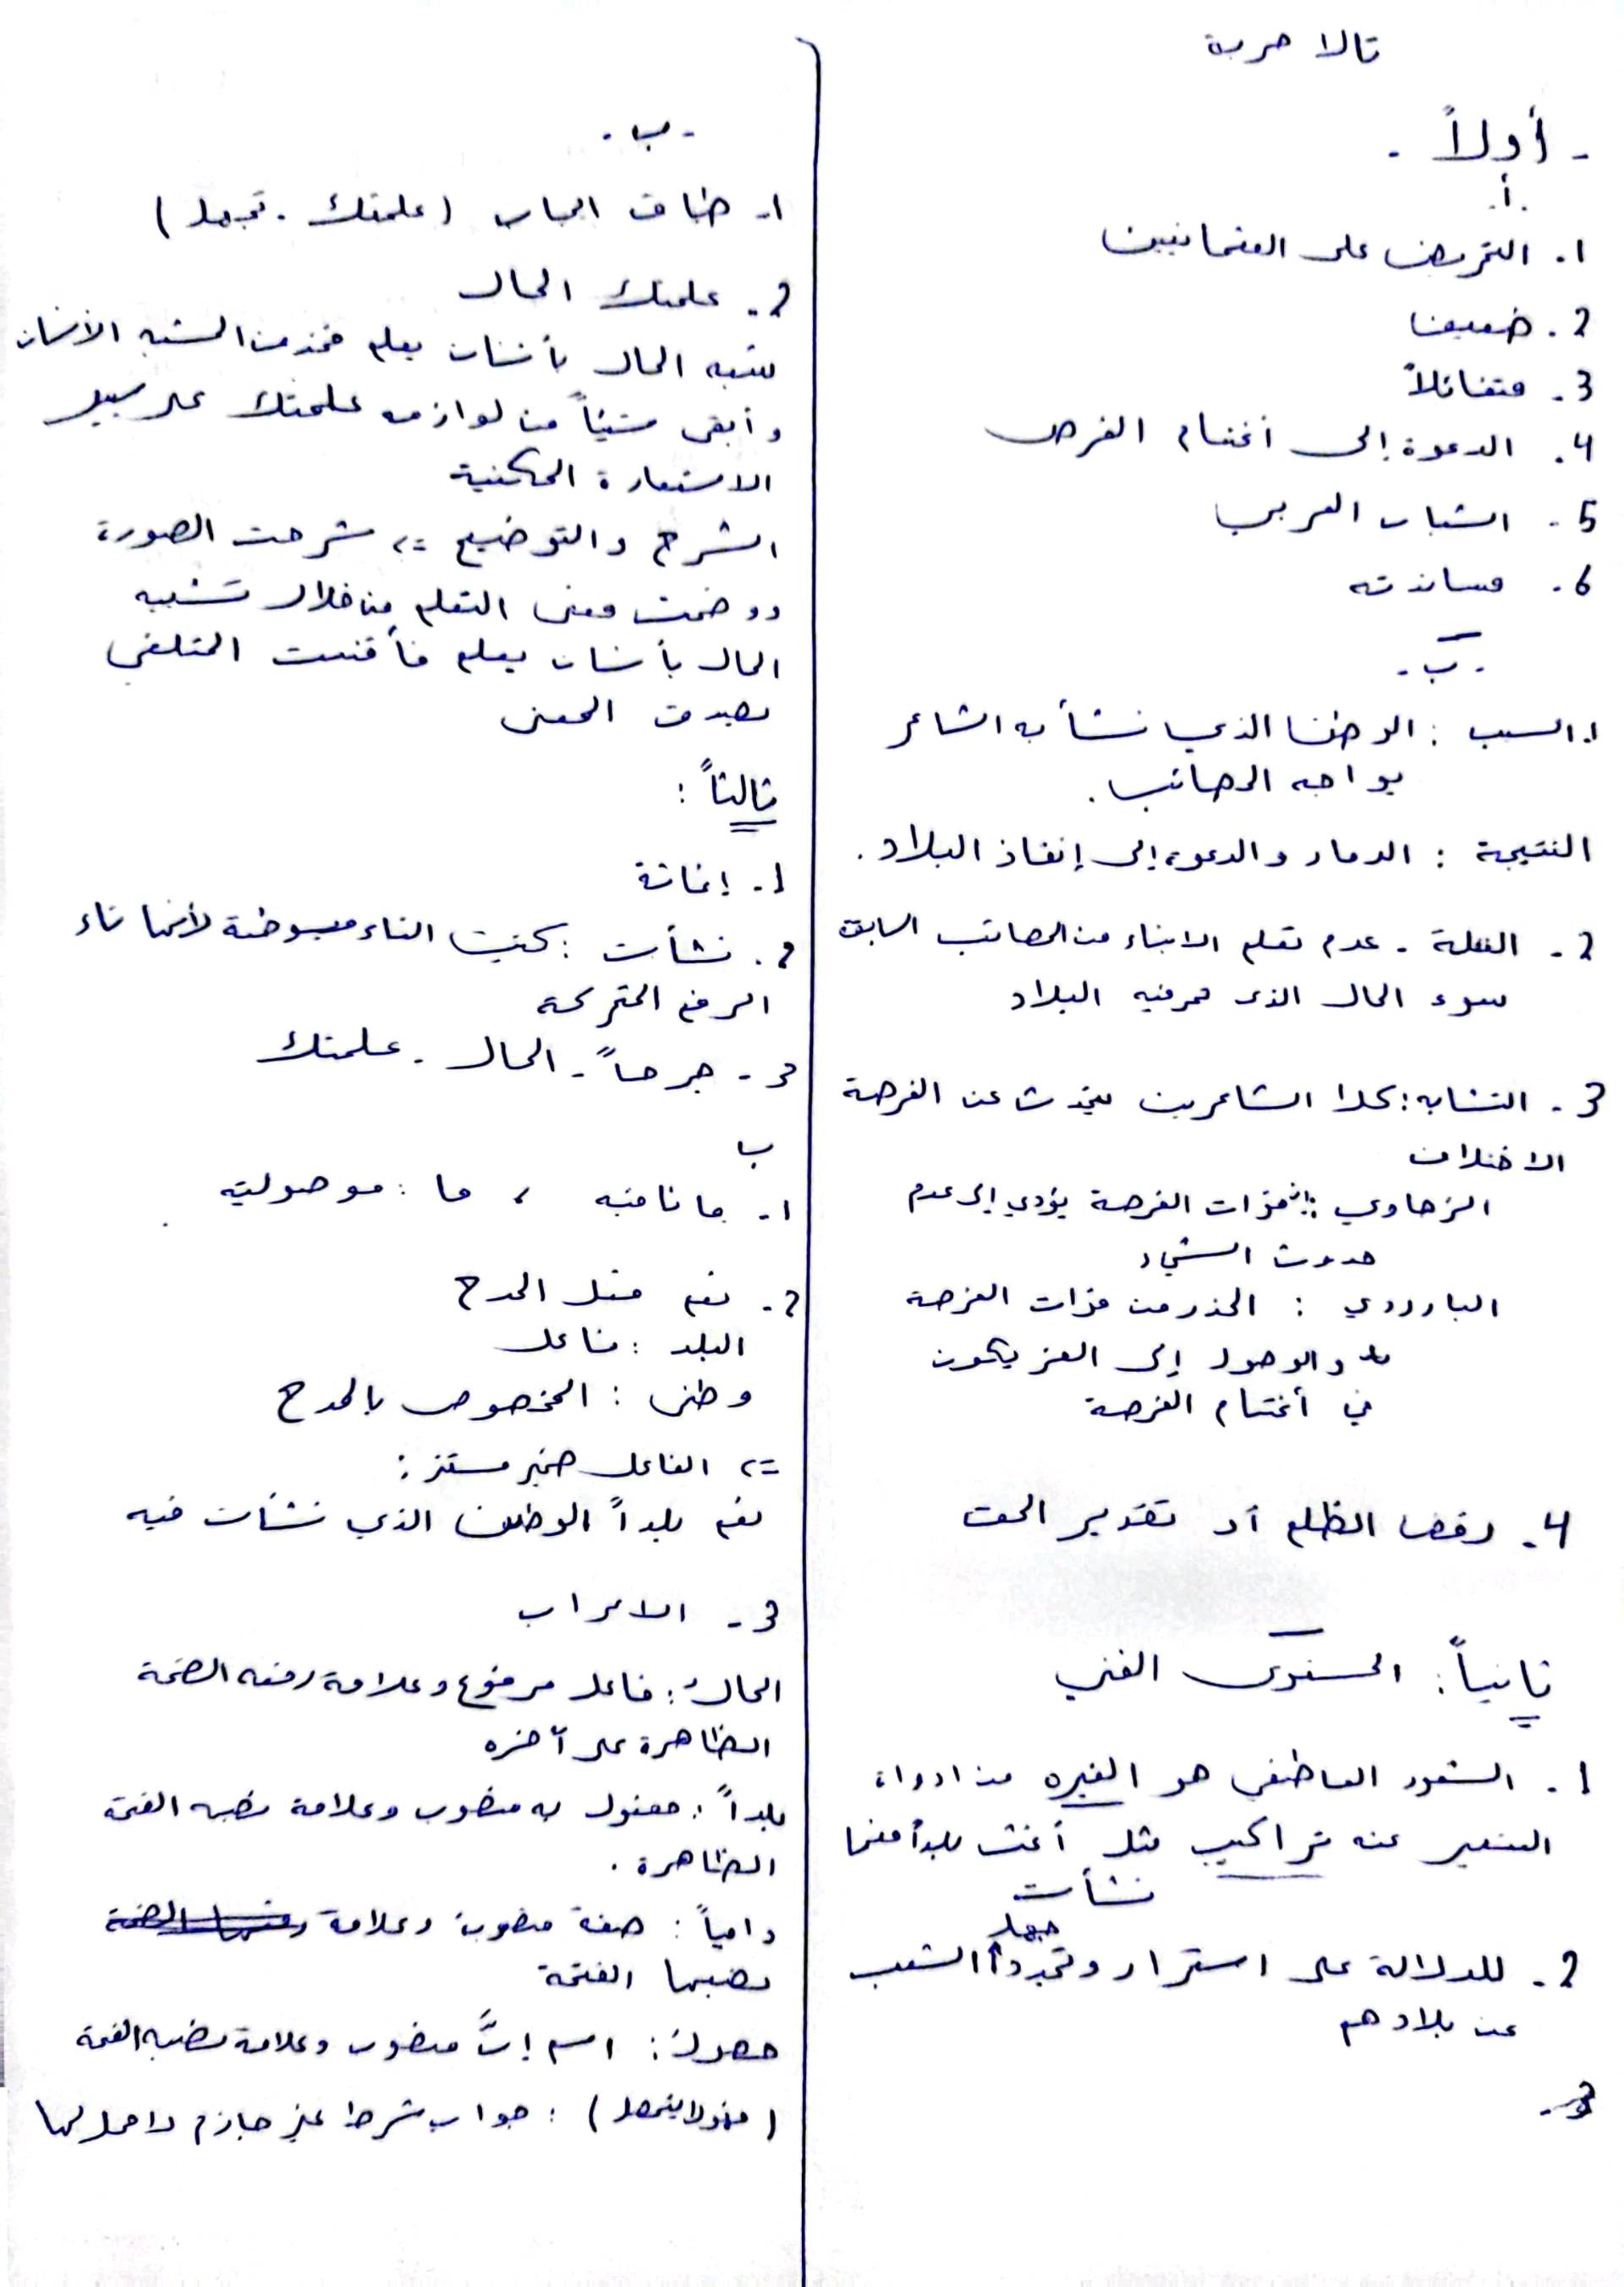 تالا حربة
- أولاً -
.أ.
1. التحريض على العثمانيين
2. ضعيف
3. متفائلاً
4. الدعوة إلى أغتنام الفرص
5. الشباب العربي
6. مساندته
- ب -
1. السبب : الوطن الذي نشأ به الشاعر
يواجه المصائب .
النتيجة : الدمار والدعوة إلى إنقاذ البلاد .
2 - الغفلة - عدم تعلم الابناء من المصائب السابقة
سوء الحال الذي تمر فيه البلاد
3 - التشابه : كلا الشاعرين يتحدث عن الفرصة
الاختلاف
الزهاوي : فوات الفرصة يؤدي إلى عدم
حدوث الشيء
البارودي : الحذر من فوات الفرصة
والوصول إلى العز يكون
في أغتنام الفرصة
4. رفض الظلم أو تقدير الحق
ثانياً : المستوى الفني
1. الشعور العاطفي هو الغيره من ادوات
التعبير عنه تراكيب مثل أغث بلداً منها
نشأت
2. للدلالة على استمرار وتجدد جهل الشعب
عن بلادهم
3-
- ب -
1- طباق ايجاب (علمتك - تجهل)
2- علمتك الحال
شبه الحال بأنسان يعلم فحذف المشبه الانسان
وأبقى شيئاً من لوازمه علمتك على سبيل
الاستعارة المكنية
الشرح والتوضيح => شرحت الصورة
ووضحت معنى التعلم من خلال تشبيه
الحال بأنسان يعلم فأقنعت المتلقي
بصدق المعنى
ثالثاً :
1- إغاثة
2. نشأت : كتبت التاء مبسوطة لأنها تاء
الرفع المتحركة
3 - جرحاً - الحال - علمتك
ب
1- ما نافيه ، ما : موصولية
2- نعم فعل المدح
البلد : فاعل
وطني : المخصوص بالمدح
=> الفاعل ضمير مستتر :
نعم بلداً الوطن الذي نشأت فيه
3 - الاعراب
الحالُ : فاعل مرفوع وعلامة رفعه الضمة
الظاهرة على آخره
بلداً : مفعول به منصوب وعلامة نصبه الفتحة
الظاهرة .
دامياً : صفة منصوبة وعلامة رفعها الضمة
نصبها الفتحة
حصول : اسم إنَّ منصوب وعلامة نصبه الفتحة
(فهو لا يحصل) : جواب شرط غير جازم لا محل لها